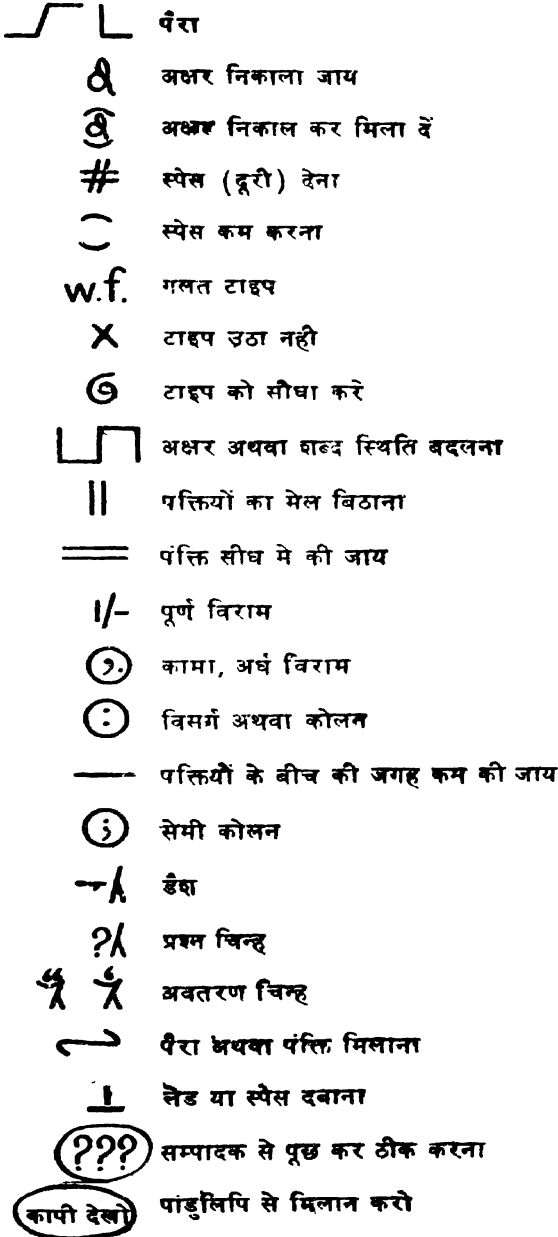 पैरा
अक्षर निकाला जाय
अक्षर निकाल कर मिला दें
# स्पेस (दूरी) देना
स्पेस कम करना
w.f. गलत टाइप
X टाइप उठा नही
टाइप को सीधा करे
अक्षर अथवा शब्द स्थिति बदलना
|| पक्तियों का मेल बिठाना
पंक्ति सीध मे की जाय
।/- पूर्ण विराम
, . कामा, अर्ध विराम
: विसर्ग अथवा कोलन
— पक्तियौं के बीच की जगह कम की जाय
; सेमी कोलन
डैश
? प्रश्न चिन्ह
“ ‘ अवतरण चिन्ह
पैरा अथवा पंक्ति मिलाना
लेड या स्पेस दबाना
??? सम्पादक से पूछ कर ठीक करना
कापी देखो पांडुलिपि से मिलान करो